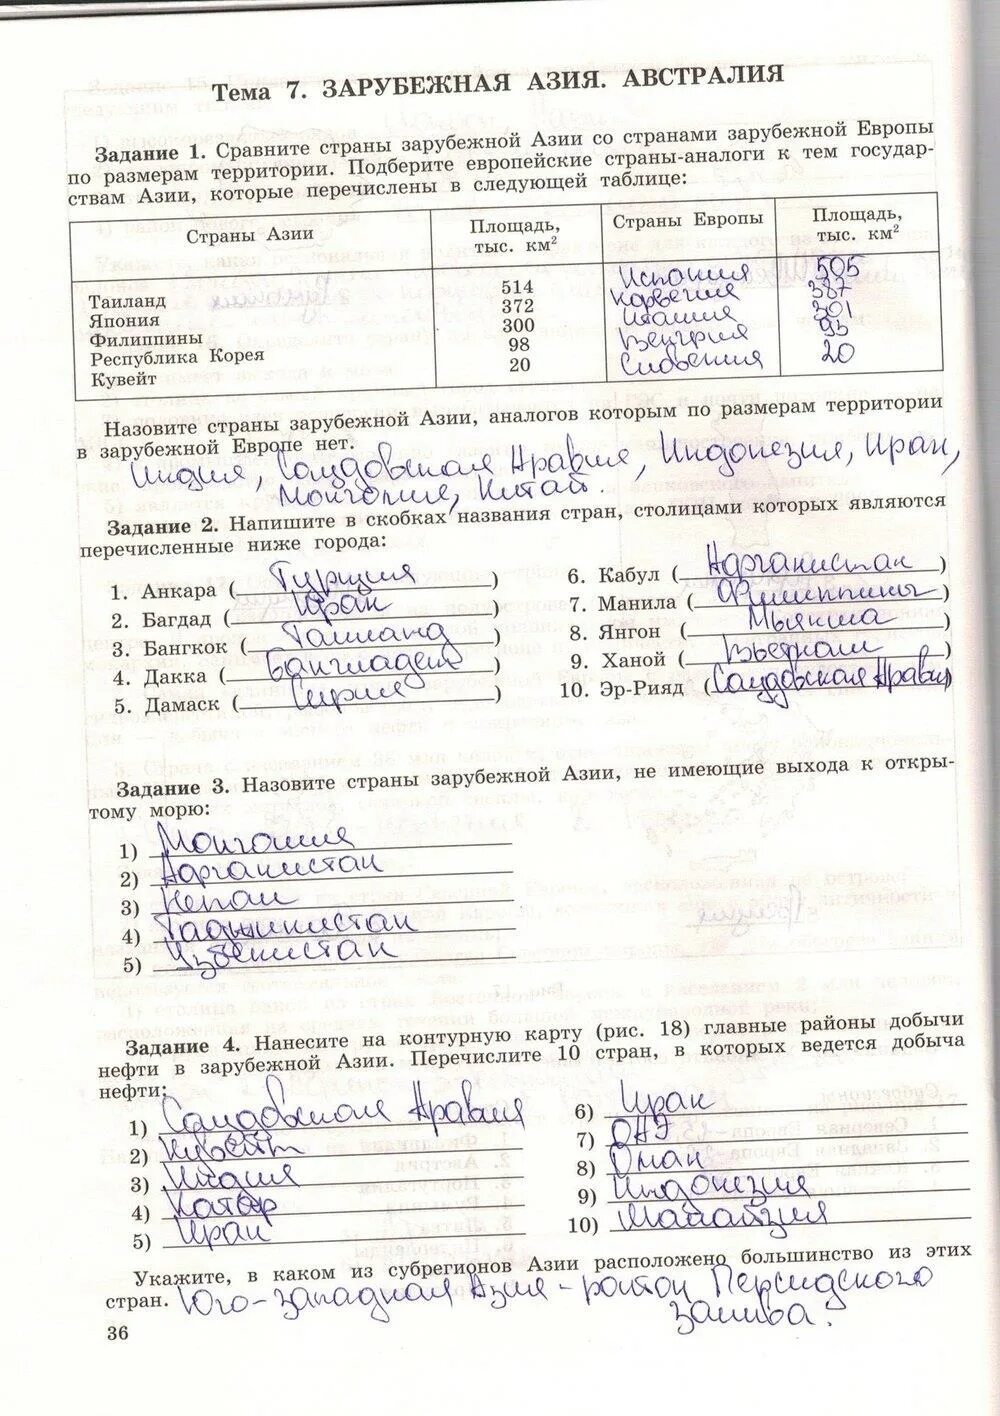 Тема 7. ЗАРУБЕЖНАЯ АЗИЯ. АВСТРАЛИЯ
Задание 1. Сравните страны зарубежной Азии со странами зарубежной Европы
по размерам территории. Подберите европейские страны-аналоги к тем государ-
ствам Азии, которые перечислены в следующей таблице:
Страны Азии Площадь, тыс. км² Страны Европы Площадь, тыс. км²
Таиланд 514 Испания 505
Япония 372 Норвегия 387
Филиппины 300 Италия 301
Республика Корея 98 Венгрия 93
Кувейт 20 Словения 20
Назовите страны зарубежной Азии, аналогов которым по размерам территории
в зарубежной Европе нет.
Индия, Саудовская Аравия, Индонезия, Иран,
Монголия, Китай.
Задание 2. Напишите в скобках названия стран, столицами которых являются
перечисленные ниже города:
1. Анкара (Турция)
2. Багдад (Ирак
3. Бангкок (Таиланд)
4. Дакка (Бангладеш)
5. Дамаск (Сирия)
6. Кабул (Афганистан)
7. Манила (Филиппины)
8. Янгон (Мьянма)
9. Ханой (Вьетнам)
10. Эр-Рияд (Саудовская Аравия)
Задание 3. Назовите страны зарубежной Азии, не имеющие выхода к откры-
тому морю:
1) Монголия
2) Афганистан
3) Непал
4) Таджикистан
5) Узбекистан
Задание 4. Нанесите на контурную карту (рис. 18) главные районы добычи
нефти в зарубежной Азии. Перечислите 10 стран, в которых ведется добыча
нефти:
1) Саудовская Аравия
2) Кувейт
3) Индия
4) Катар
5) Иран
6) Ирак
7) ОАЭ
8) Оман
9) Индонезия
10) Малайзия
Укажите, в каком из субрегионов Азии расположено большинство из этих
стран. Юго-западная Азия - район Персидского
залива.
36